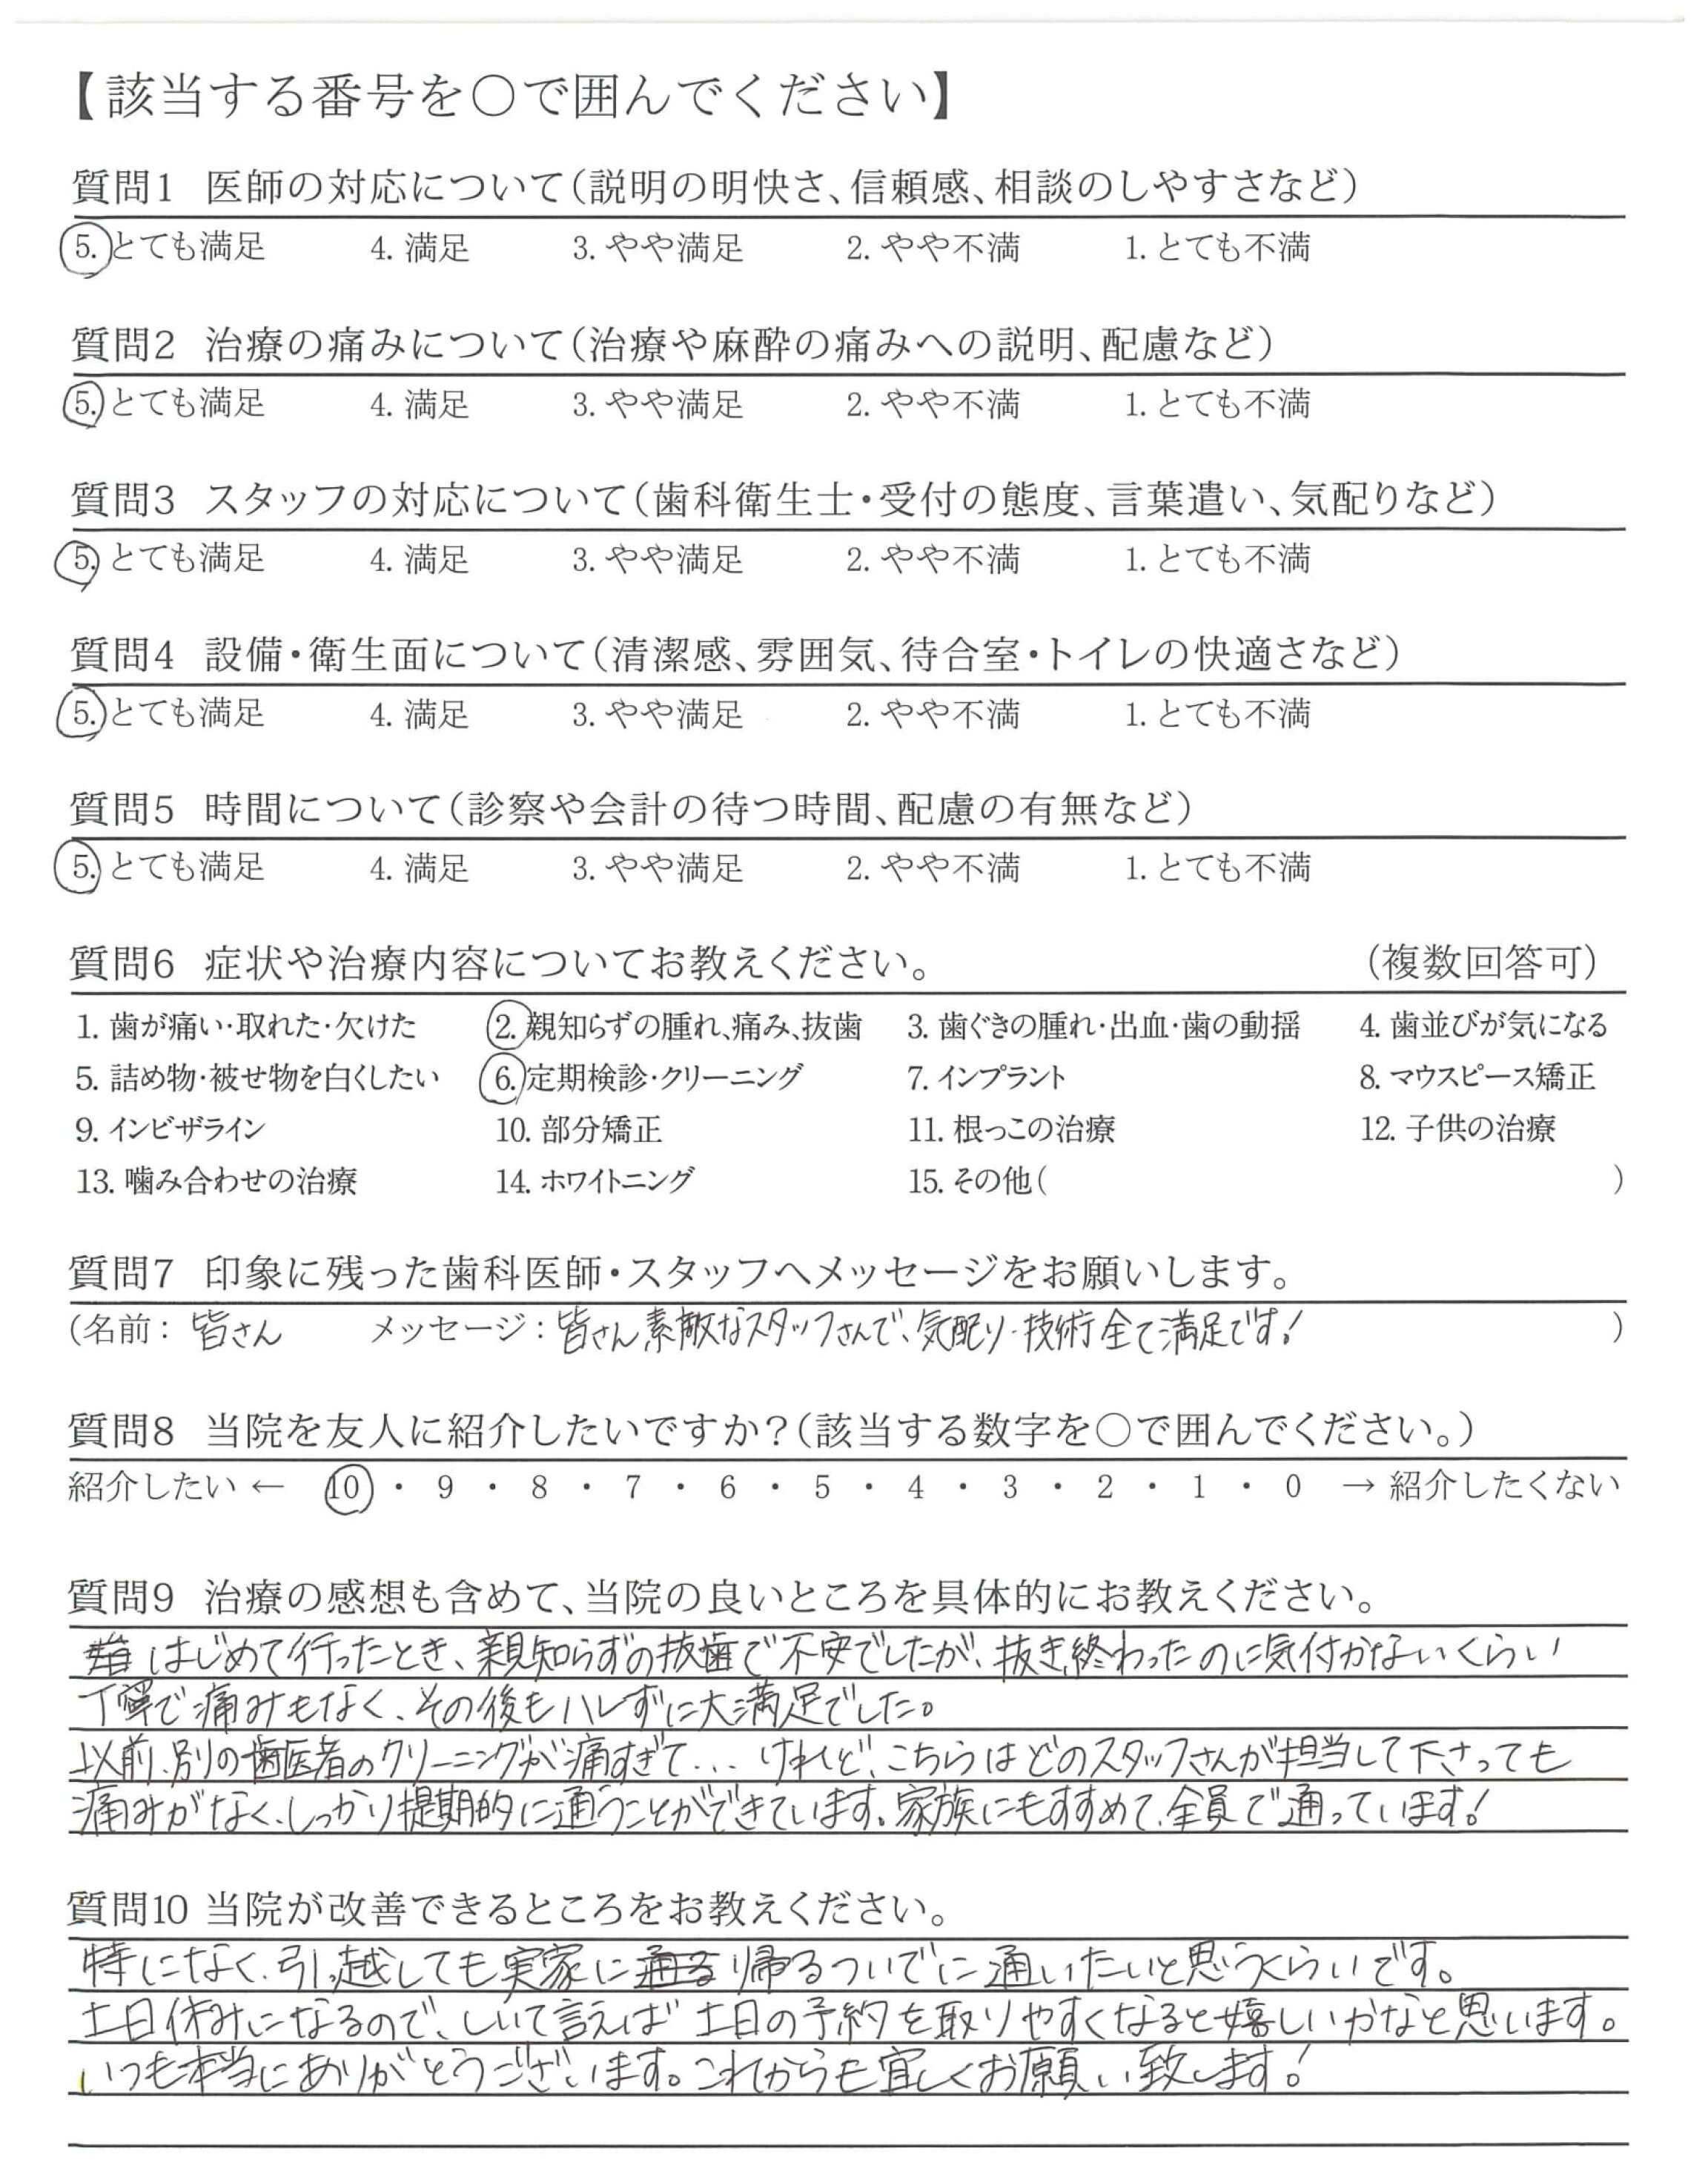 【該当する番号を〇で囲んでください】
質問1 医師の対応について（説明の明快さ、信頼感、相談のしやすさなど）
5. とても満足 4. 満足 3. やや満足 2. やや不満 1. とても不満
質問2 治療の痛みについて（治療や麻酔の痛みへの説明、配慮など）
5. とても満足 4. 満足 3. やや満足 2. やや不満 1. とても不満
質問3 スタッフの対応について（歯科衛生士・受付の態度、言葉遣い、気配りなど）
5. とても満足 4. 満足 3. やや満足 2. やや不満 1. とても不満
質問4 設備・衛生面について（清潔感、雰囲気、待合室・トイレの快適さなど）
5. とても満足 4. 満足 3. やや満足 2. やや不満 1. とても不満
質問5 時間について（診察や会計の待つ時間、配慮の有無など）
5. とても満足 4. 満足 3. やや満足 2. やや不満 1. とても不満
質問6 症状や治療内容についてお教えください。 （複数回答可）
1. 歯が痛い・取れた・欠けた 2. 親知らずの腫れ、痛み、抜歯 3. 歯ぐきの腫れ・出血・歯の動揺 4. 歯並びが気になる
5. 詰め物・被せ物を白くしたい 6. 定期検診・クリーニング 7. インプラント 8. マウスピース矯正
9. インビザライン 10. 部分矯正 11. 根っこの治療 12. 子供の治療
13. 噛み合わせの治療 14. ホワイトニング 15. その他（ ）
質問7 印象に残った歯科医師・スタッフへメッセージをお願いします。
（名前：皆さん メッセージ：皆さん素敵なスタッフさんで、気配り・技術全て満足です! ）
質問8 当院を友人に紹介したいですか？（該当する数字を〇で囲んでください。）
紹介したい ← 10 ・ 9 ・ 8 ・ 7 ・ 6 ・ 5 ・ 4 ・ 3 ・ 2 ・ 1 ・ 0 → 紹介したくない
質問9 治療の感想も含めて、当院の良いところを具体的にお教えください。
はじめて行ったとき、親知らずの抜歯で不安でしたが、抜き終わったのに気付かないくらい
丁寧で痛みもなく、その後もハレずに大満足でした。
以前、別の歯医者のクリーニングが痛すぎて... けれど、こちらはどのスタッフさんが担当して下さっても
痛みがなく、しっかり提期的に通うことができています。家族にもすすめて、全員で通っています!
質問10 当院が改善できるところをお教えください。
特になく、引っ越しても実家に通る帰るついでに通いたいと思うくらいです。
土日休みになるので、しいて言えば土日の予約を取りやすくなると嬉しいかなと思います。
いつも本当にありがとうございます。これからも宜しくお願い致します!